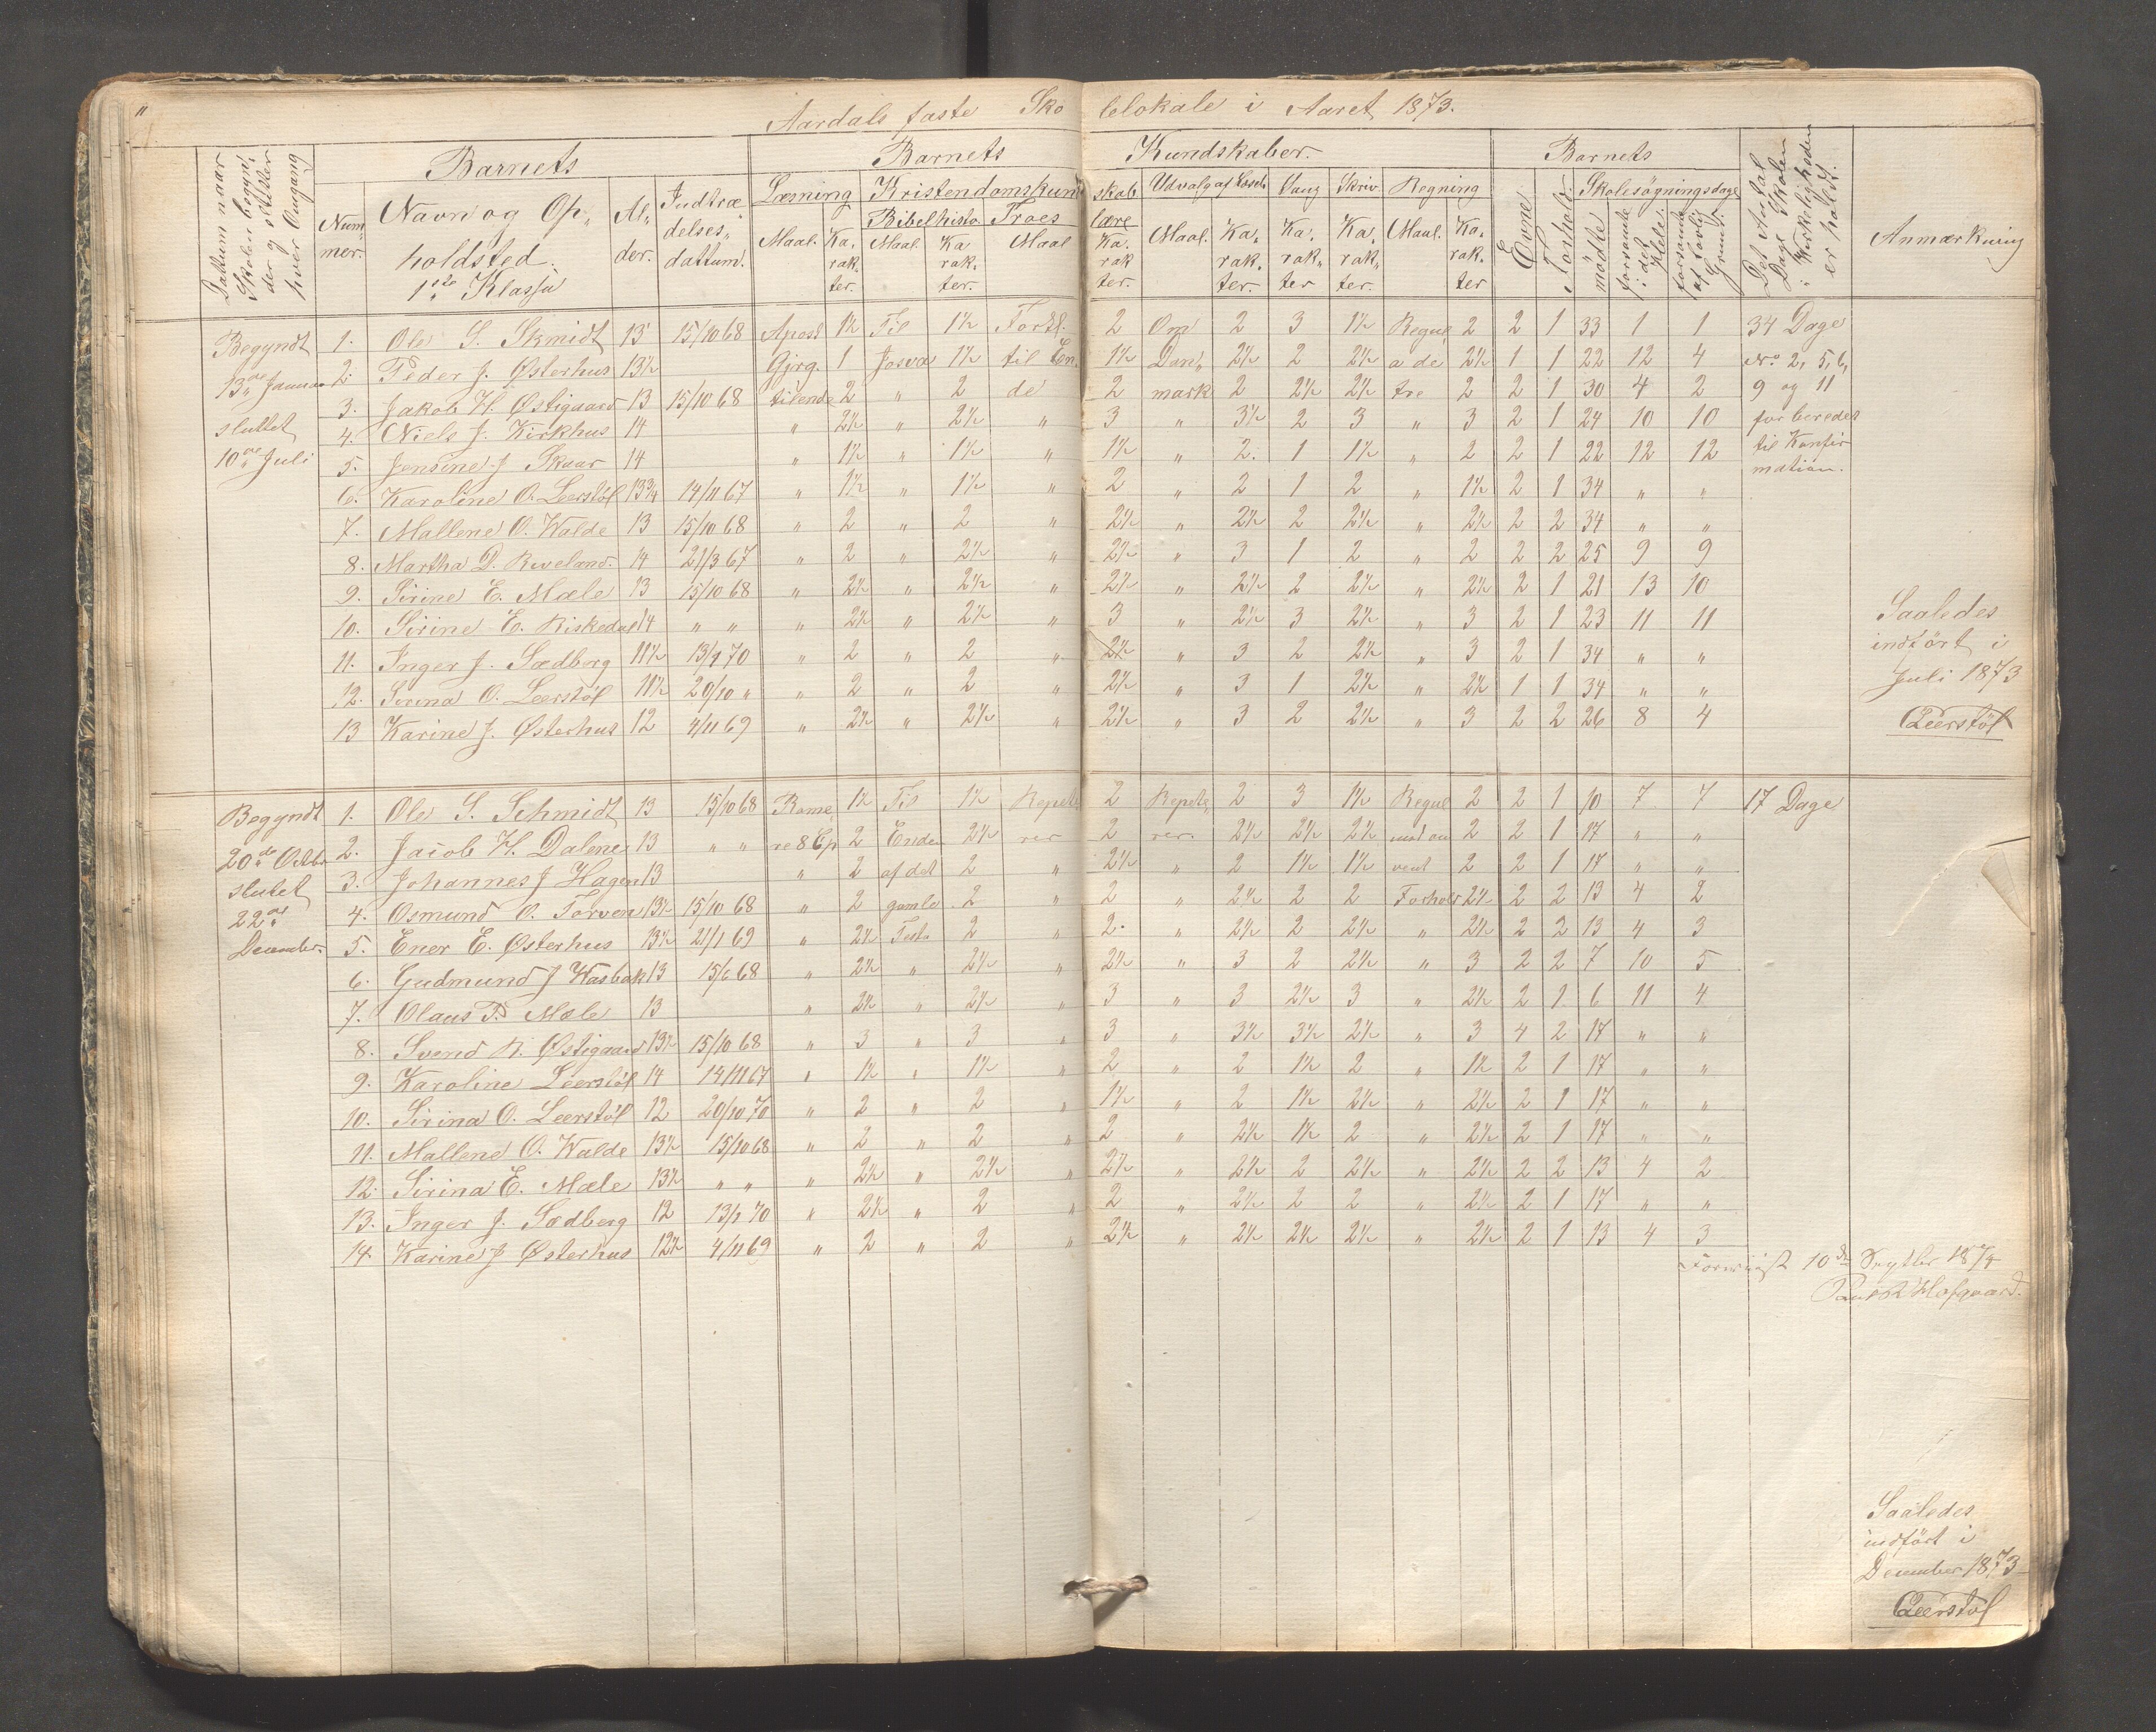 "
Aardals faste Skolelokale i Aaret 1873.
Dattum naar Skolen begyn, der og slutter hver Omgang
Barnets
Barnets Kundskaber.
Barnets
Det Antal Dage Skolen i Virkeligheden er holdt.
Anmærkning
Num mer.
Navn og Op, holdsted.
1ste Klasse
Al, der.
Indtræ delses, dattum.
Læsning
Kristendomskundskab
Udvalg af Læseb
Sang
Skriv
Regning
Evne
Forhold
Skolesøgningsdage
Maal. Ka, rak, ter.
Bibelhisto Troeslære
Maal. Ka rak, ter. Maal Ka, rak ter.
Maal. Ka, rak, ter.
Ka, rak, ter
Ka, rak, ter.
Maal. Ka, rak, ter
mødte
forsømte i det Hele.
forsømte af lovlig Grund.
Begyndt
13de Januar
sluttet
10de Juli
1. Ole S. Skmidt 13 15/10 68 Apost 1½ Til 1½ Forkl. 2 Om 2 3 1½ Regul 2 2 1 33 1 1 34 Dage
2. Peder J. Østerhus 13½ Gjrg. 1 Josva 1½ til En, 1½ Dan, 2½ 2 2½ a de 2½ 1 1 22 12 4 No 2, 5, 6,
3. Jakob H. Østigaard 13 15/10 68 tilende 2 " 2 de 2 mark 2 2½ 2½ tre 2 2 1 30 4 2 9 og 11
4. Niels J. Kirkhus 14 " 2½ " 2½ " 3 " 3½ 2 3 " 3 2 1 24 10 10 forberedes
5. Jensine J Skaar 14 " 1½ " 1½ " 1½ " 2. 1 1½ " 2 2 1 22 12 12 til Konfir
mation.
6. Karoline O. Leerstöl 13¾ 14/11 67 " 1½ " 1½ " 2 " 2 1 2 " 1½ 2 1 34 " "
7. Mallene O. Walde 13 15/10 68 " 2 " 2 " 2½ " 2½ 2 2½ " 2½ 2 2 34 " "
8. Martha D. Riveland. 14 21/3 67 " 2 " 2½ " 2½ " 3 1 2 " 2 2 2 25 9 9
9. Sirine E. Mæle 13 15/10 68 " 2½ " 2½ " 2½ " 2½ 2 2½ " 2½ 2 1 21 13 10
10. Sirine E. Riskedal 14 " " " 2½ " 2½ " 3 " 2½ 3 2½ " 3 2 1 23 11 11
11. Inger J. Sædberg 11½ 13/1 70 " 2 " 2 " 2½ " 3 2 2½ " 3 2 1 34 " "
12. Sirina O. Leerstöl 11½ 20/10 " " 2 " 2 " 2½ " 3 1 2½ " 2½ 1 1 34 " "
13 Karine J. Østerhus 12 4/11 69 " 2½ " 2½ " 2½ " 3 2 2½ " 3 2 2 26 8 4
Saaledes
indført i
Juli 1873
Leerstöl
Begyndt
20de Octbr
slutet
22de
December.
1. Ole S. Schmidt 13 15/10 68 Rome, 1½ Til 1½ Repete, 2 Repete, 2 3 1½ Regul 2 2 1 10 7 7 17 Dage
2. Jacob H. Dalene 13 " " re 8 Cp 2 Enden 2½ rer 2 rer. 2½ 2½ 2½ 2 2 1 17 " "
3. Johannes J Hagen 13 " 2 af det 2 " 2½ " 2 1½ 1½ vent 2 2 1 17 " "
4. Osmund O. Torven 13½ 15/10 68 " 2 gamle 2 " 2 " 2½ 2 2 Forhold 2½ 2 2 13 4 2
5. Ener E. Østerhus 13½ 21/1 69 " 2½ Testa 2 " 2. " 2½ 2 2½ " 2½ 2 2 13 4 3
6. Gudmund J Wasbak 13 15/6 68 " 2½ " 2½ " 2½ " 3 2 2½ " 3 2 2 7 10 5
7. Olaus T. Mæle 13 " 2½ " 2½ " 3 " 3 2½ 3 " 2½ 2 1 6 11 4
8. Svend R. Østigaard 13½ 15/10 68 " 3 " 3 " 3 " 3½ 3½ 2½ " 3 4 2 17 " "
9. Karoline Leerstöl 14 14/11 67 " 1½ " 1½ " 2 " 2 1½ 2 " 1½ 2 1 17 " "
10. Sirina O. Leerstöl 12 20/10 70 " 2 " 2 " 1½ " 2 1½ 2½ " 2½ 2 1 17 " "
11. Mallene O. Walde 13½ 15/10 68 " 2 " 2 " 2 " 2½ 1½ 2 " 2½ 2 1 17 " "
12. Sirina E. Mæle 13½ " " " 2½ " 2½ " 2½ " 2½ 2 2½ " 2½ 2 2 13 4 2
13. Inger J. Sædberg 12 13/1 70 " 2½ " 2 " 2 " 2½ 2 2 " 2½ 2 1 17 " "
14. Karine J Østerhus 12½ 4/11 69 " 2 " 2 " 2½ " 2½ 2½ 2½ " 2½ 2 1 13 4 3
Forevist 10de Septbr 1874
Hofgaard.
Saaledes
indført i
December 1873
Leerstöl